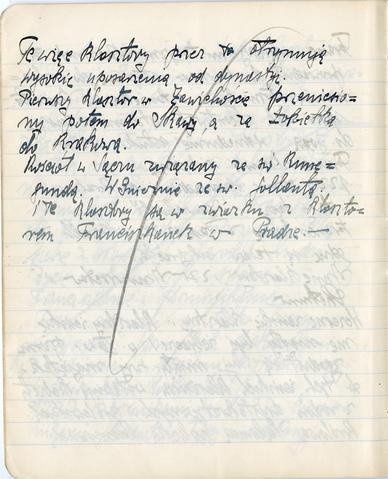 Te więc klasztory przez to otrzymują
wysokie uposażenia od dynastji.
Pierwszy klasztor w Zawichoście przeniesio=
ny potem do Skały, a za Łokietka
do Krakowa.
Kościół w Sączu związany ze św. Kune=
gundą, Gnieźnie ze św. Jolantą.
i Te klasztory są w związku z klaszto=
rem Franciszkanek w Pradze.—